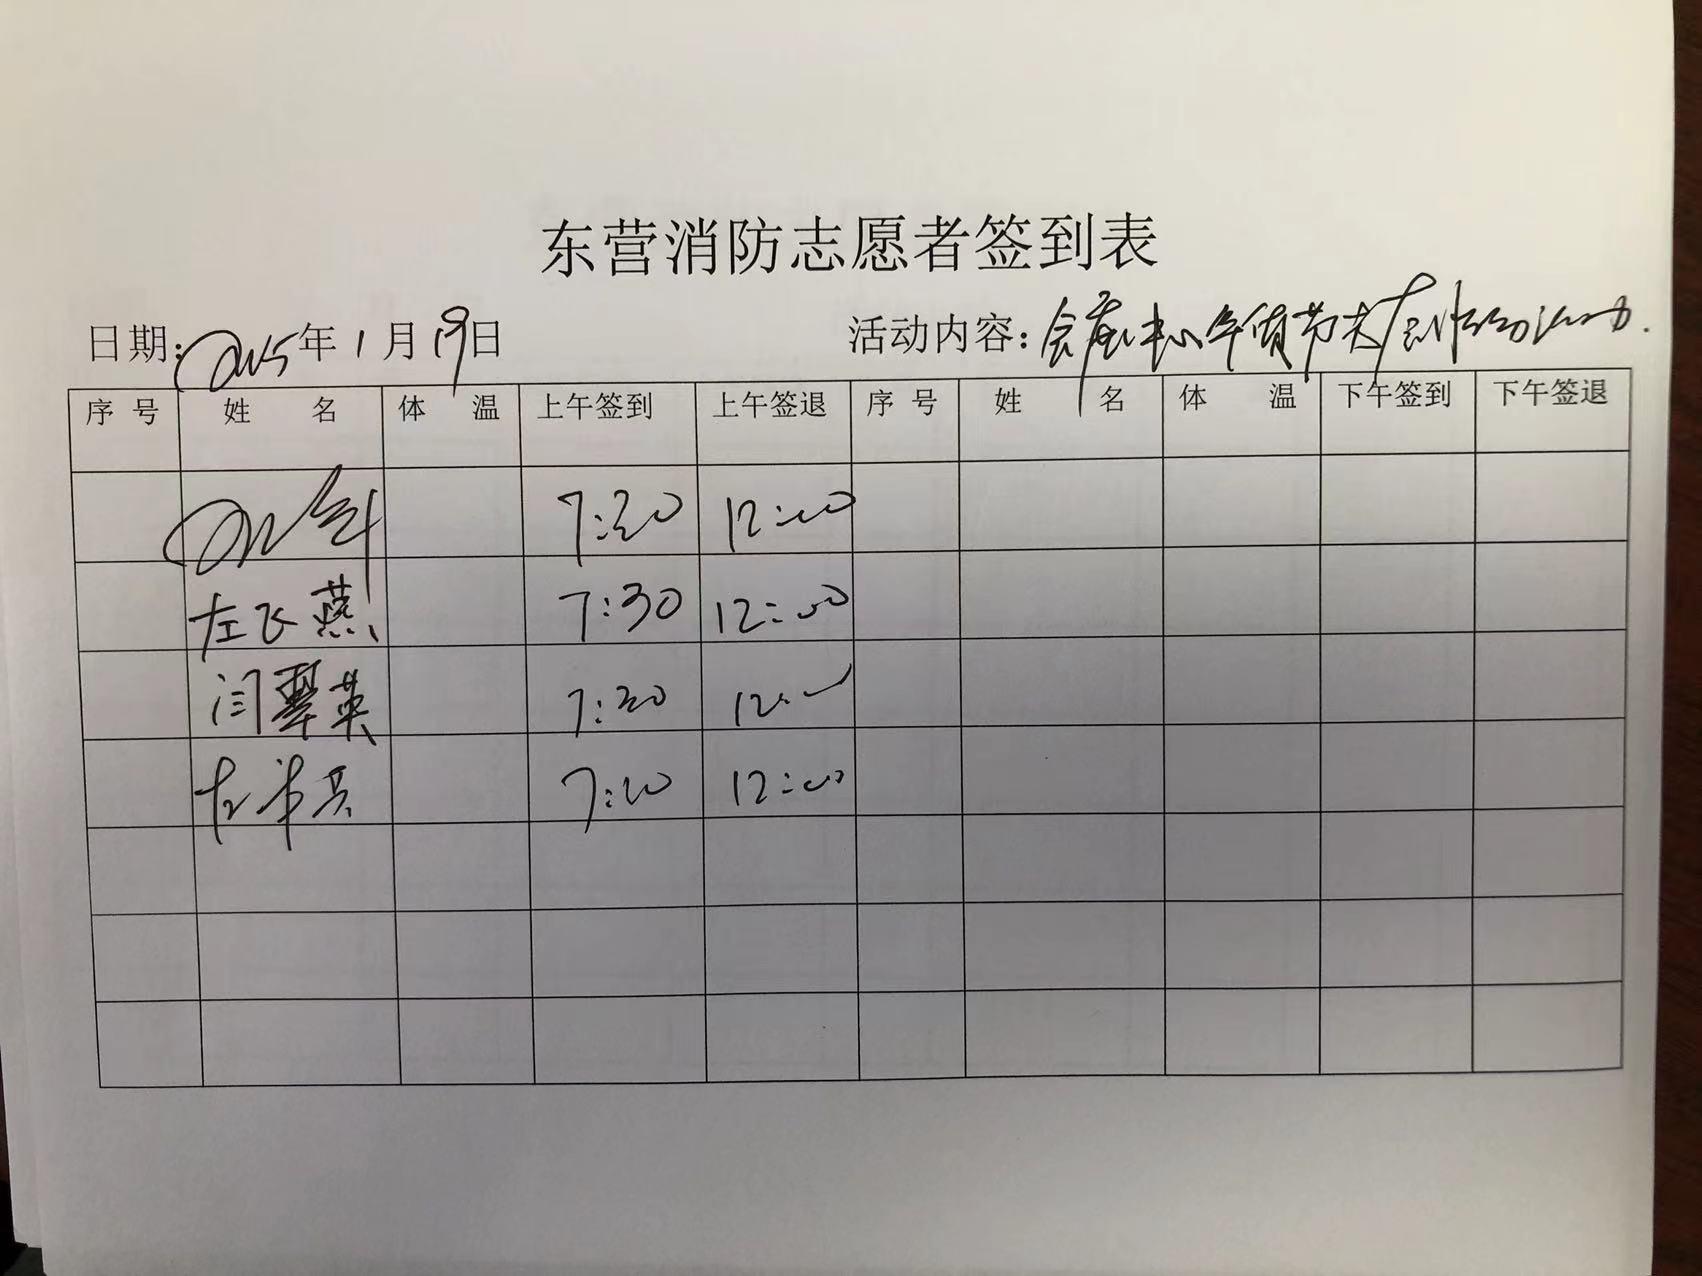 东营消防志愿者签到表
日期: 2025年1月19日 活动内容: 会展中心年货节大厅
序号 姓名 体温 上午签到 上午签退 序号 姓名 体温 下午签到 下午签退
7:30 12:00
左飞燕 7:30 12:00
闫翠英 7:30 12:00
左 兵 7:20 12:00